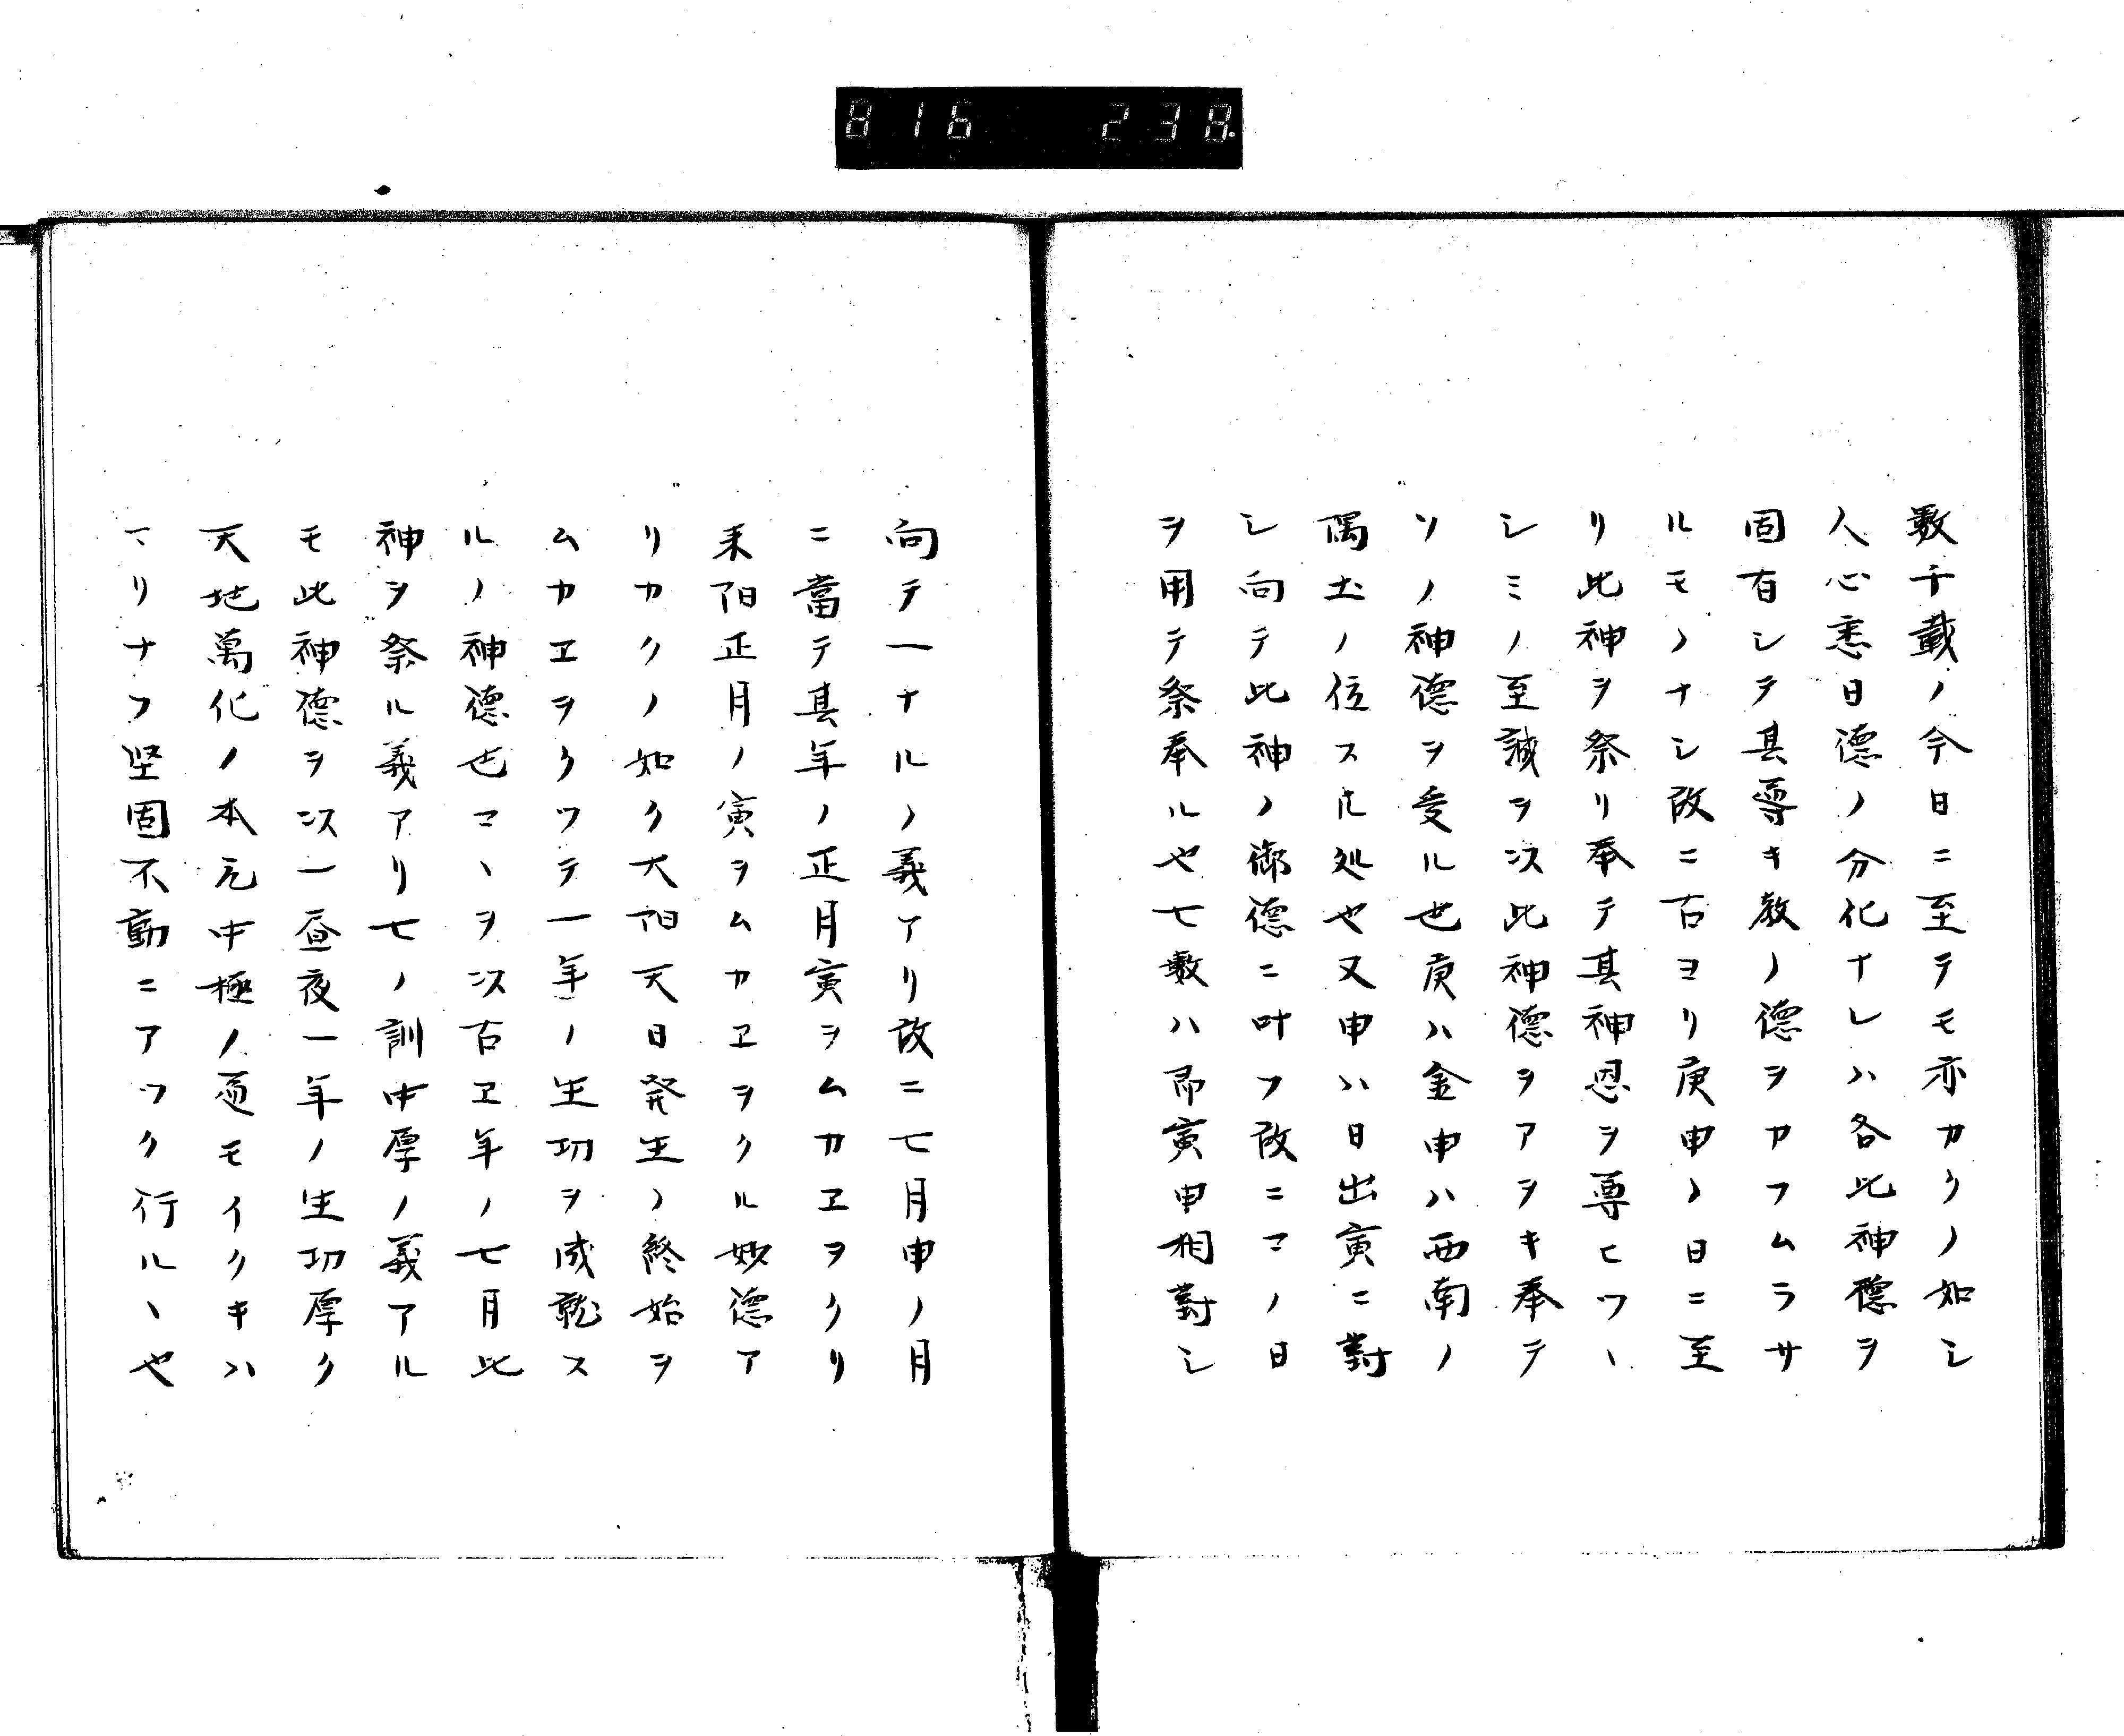 816 238.
数千載ノ今日ニ至テモ亦カクノ如シ
人心悉日徳ノ分化ナレハ各此神徳ヲ
固有シテ其尊キ教ノ徳ヲカフムラサ
ルモノナシ故ニ古ヨリ庚申ノ日ニ至
リ此神ヲ祭リ奉テ其神恩ヲ尊ヒツヽ
シミノ至誠ヲ以此神徳ヲアヲキ奉テ
ソノ神徳ヲ受ル也庚ハ金申ハ西南ノ
隅土ノ位スル処也又申ハ日出寅ニ對
シ向テ此神ノ御徳ニ叶フ故ニコノ日
ヲ用テ祭奉ル也七数ハ即寅申相對シ
向テ一ナルノ義アリ故ニ七月申ノ月
ニ當テ其年ノ正月寅ヲムカエヲクリ
来陽正月ノ寅ヲムカヱヲクル妙徳ア
リカクノ如ク大陽天日発生ノ終始ヲ
ムカエヲクツテ一年ノ生功ヲ成就ス
ルノ神徳也コヽヲ以古ヱ年ノ七月此
神ヲ祭ル義アリ七ノ訓中厚ノ義アル
モ此神徳ヲ以一昼夜一年ノ生功厚ク
天地萬化ノ本元中極ノ道モイクキハ
マリナフ堅固不動ニアツク行ルヽ也